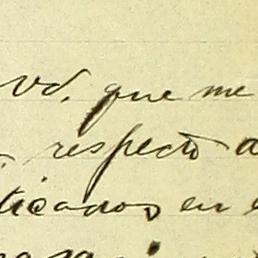 Vd. que me
respecto a
ticados en e